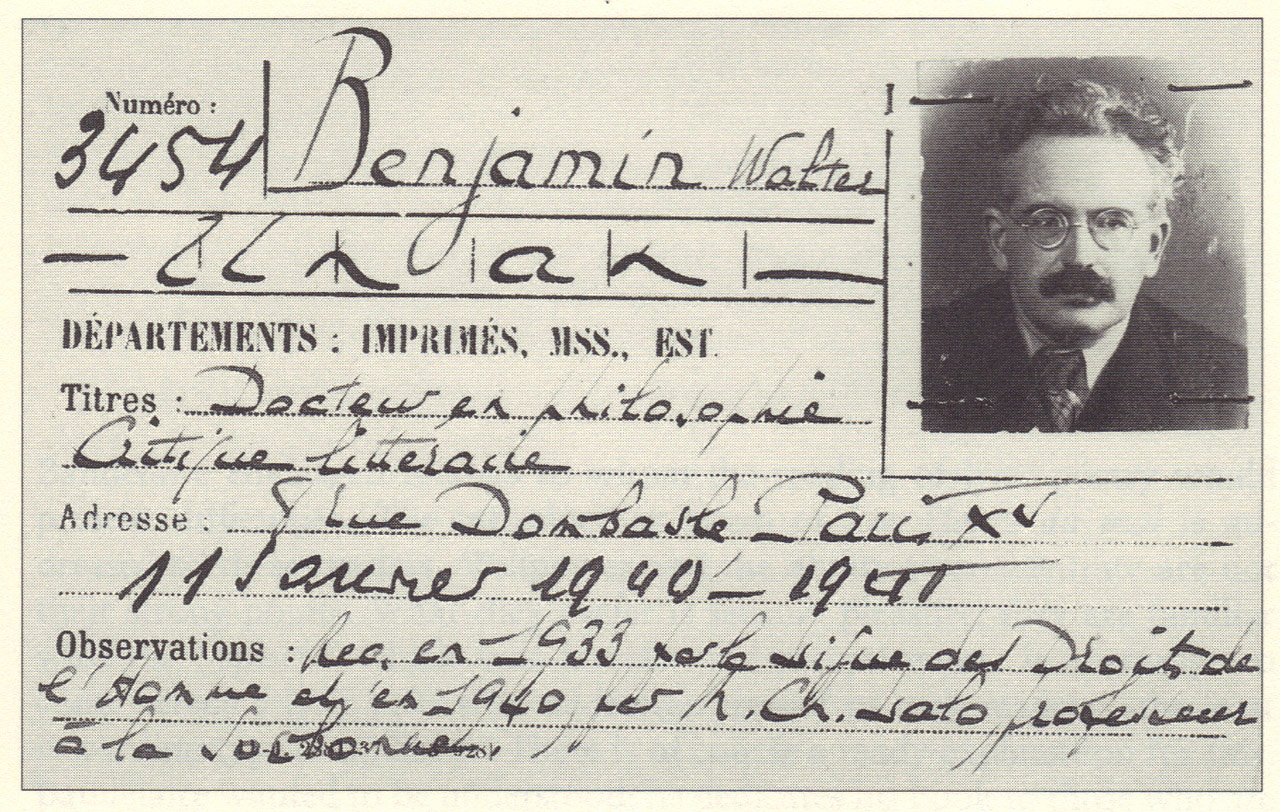 Numéro :
3454
Benjamin Walter
DÉPARTEMENTS : IMPRIMÉS, MSS., EST.
Titres : Docteur en philosophie
Critique littéraire
Adresse : Rue Dombasle Paris XV
11 Janvier 1940 - 1941
Observations : Rec. en 1933 par la Ligue des Droits de
l'Homme et en 1940 par M. Ch. Lalo professeur
à la Sorbonne